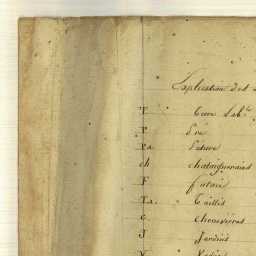 Explication des
T Terre Lab.le
P Pré
Pa Pature
ch chataigneraies
F futaie
Ta. Taillis
c chenevieres
J Jardins
V